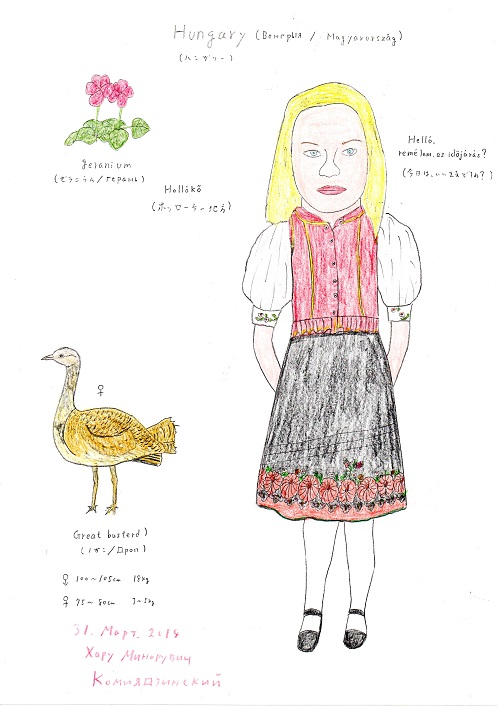 Hungary (Венгрыя / Magyarország)
(ハンガリー)
geranium
(ゼラニウム/герань)
Hollókő
(ホッローケー地方)
Helló,
remélem, az időjárás?
(今日は、いい
♀
Great busterd)
(ノガン/Дроп)
♂ 100~105cm 18kg
♀ 75~80cm 3~5kg
31. Март. 2019
Хару Минорувич
Комиядзинский